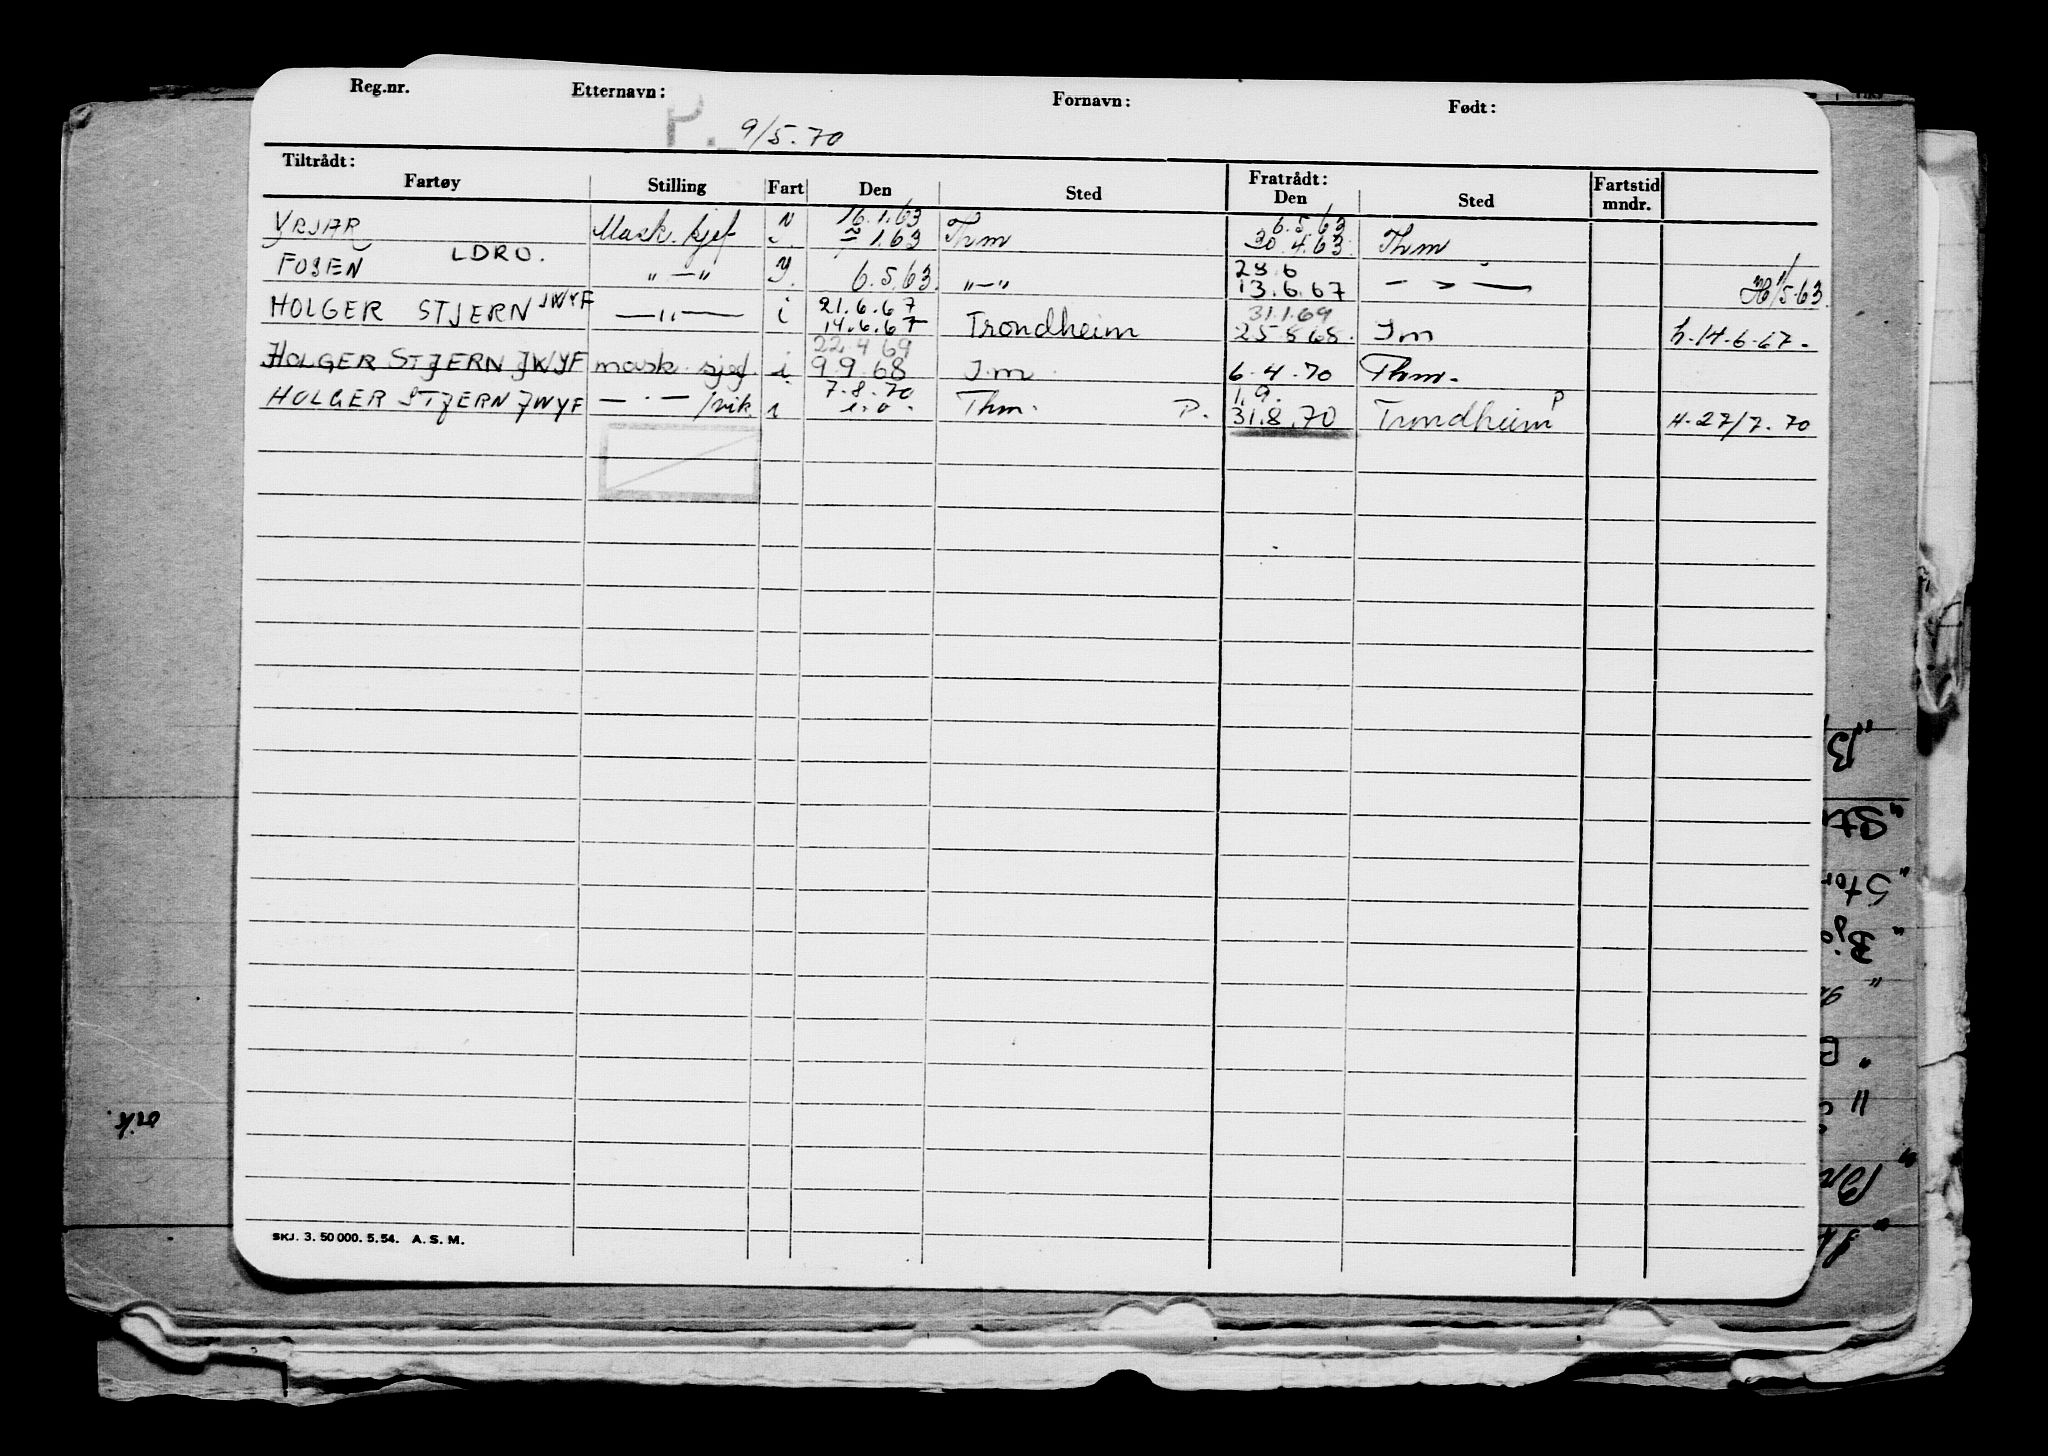 Reg.nr. Etternavn: Fornavn: Født:
P. 9/5.70
Tiltrådt: Fratrådt:
Fartøy Stilling Fart Den Sted Den Sted Fartstid mndr.
16.1.63 6.5.63
YRJAR Mask. sjef 1.63 Thm 30.4.63 Thm
LDRO. 28.6
FOSEN " — " y. 6.5.63. " — " 13.6.67 — " — /5.63.
HOLGER STJERN JWYF — " — i 21.6.67 31.1.69
14.6.67 Trondheim 25.8.68. Im h. 14.6.67.
22.4 69
HOLGER STJERN JWYF mask. sjef. i 9.9.68 Im 6.4.70 Thm.
7.8.70 1.9. P
HOLGER STJERN JWYF — " — /vik. i i.o. Thm. P. 31.8.70 Trondheim H. 27/7.70
SKJ. 3. 50 000. 5. 54. A. S. M.
vik.